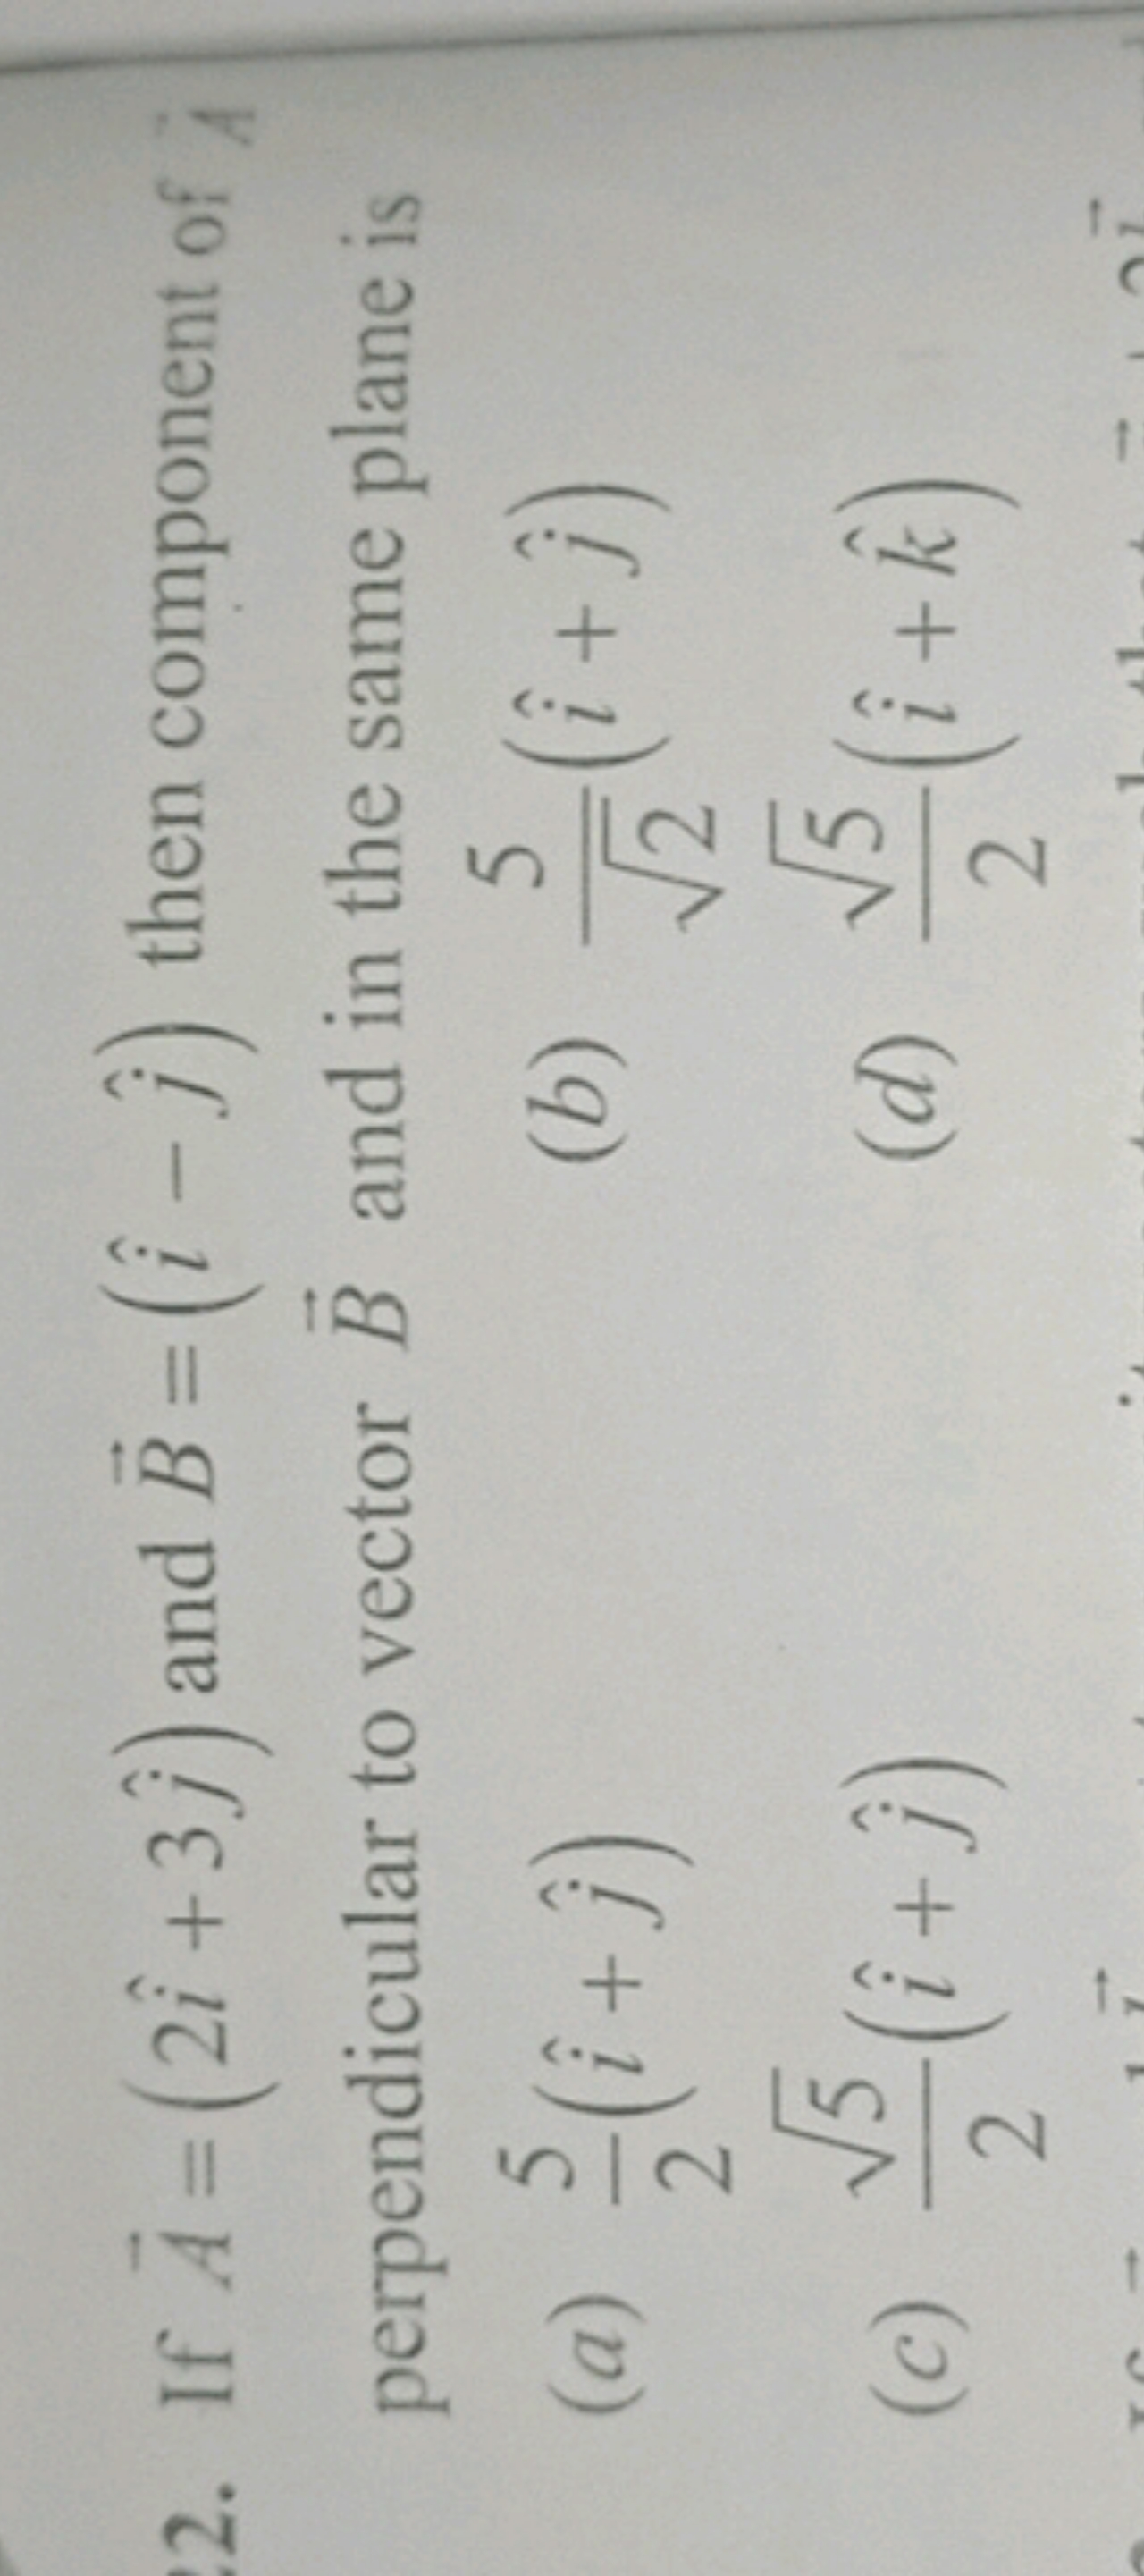 22. If $\vec{A} = (2\hat{i} + 3\hat{j})$ and $\vec{B} = (\hat{i} - \hat{j})$ then component of $\vec{A}$
perpendicular to vector $\vec{B}$ and in the same plane is
(a) $\frac{5}{2}(\hat{i} + \hat{j})$ (b) $\frac{5}{\sqrt{2}}(\hat{i} + \hat{j})$
(c) $\frac{\sqrt{5}}{2}(\hat{i} + \hat{j})$ (d) $\frac{\sqrt{5}}{2}(\hat{i} + \hat{k})$